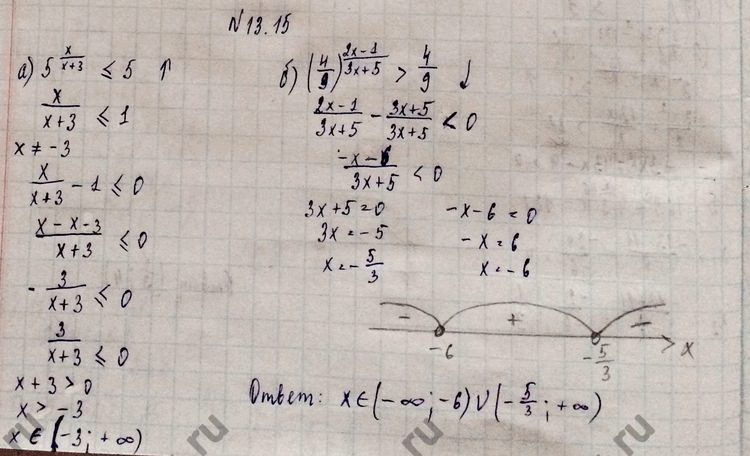 N 13.15
а) 5^(x/(x+3)) ≤ 5 ↑
x/(x+3) ≤ 1
x ≠ -3
x/(x+3) - 1 ≤ 0
(x-x-3)/(x+3) ≤ 0
-3/(x+3) ≤ 0
3/(x+3) ≤ 0
x + 3 > 0
x > -3
x ∈ (-3; +∞)
б) (4/9)^((2x-1)/(3x+5)) > 4/9 ↓
(2x-1)/(3x+5) - (3x+5)/(3x+5) < 0
(-x-6)/(3x+5) < 0
3x+5=0 -x-6=0
3x=-5 -x=6
x=-5/3 x=-6
- + -
-6 -5/3 x
Ответ: x∈(-∞;-6)∪(-5/3;+∞)
ru ru ru ru